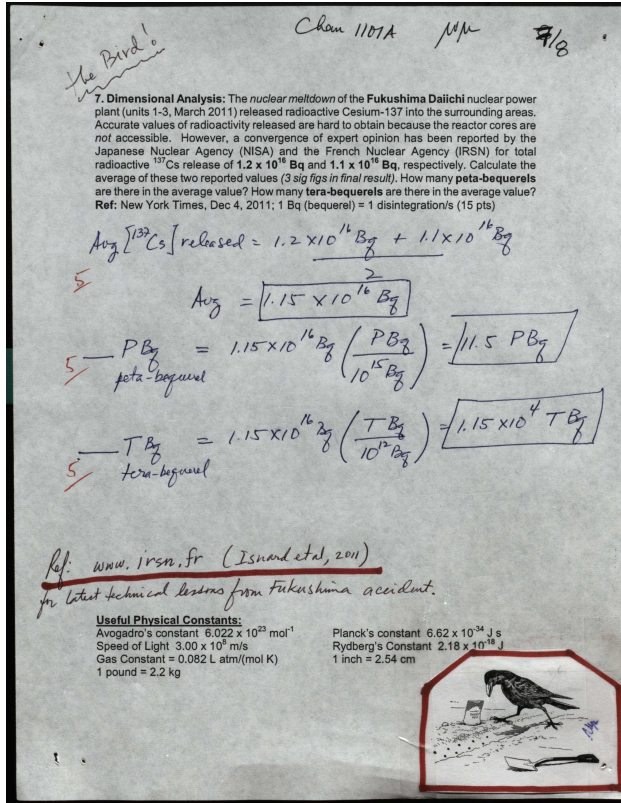 Chem 1101A
7/8
the Bird!
7. Dimensional Analysis: The nuclear meltdown of the Fukushima Daiichi nuclear power
plant (units 1-3, March 2011) released radioactive Cesium-137 into the surrounding areas.
Accurate values of radioactivity released are hard to obtain because the reactor cores are
not accessible. However, a convergence of expert opinion has been reported by the
Japanese Nuclear Agency (NISA) and the French Nuclear Agency (IRSN) for total
radioactive ¹³⁷Cs release of 1.2 x 10¹⁶ Bq and 1.1 x 10¹⁶ Bq, respectively. Calculate the
average of these two reported values (3 sig figs in final result). How many peta-bequerels
are there in the average value? How many tera-bequerels are there in the average value?
Ref: New York Times, Dec 4, 2011; 1 Bq (bequerel) = 1 disintegration/s (15 pts)
Avg [¹³⁷Cs] released = 1.2 x10¹⁶ Bq + 1.1 x 10¹⁶ Bq
2
5
Avg = 1.15 x 10¹⁶ Bq
5 __ PBq = 1.15 x 10¹⁶ Bq (PBq / 10¹⁵ Bq) = 11.5 PBq
peta-bequerel
5 __ TBq = 1.15 x10¹⁶ Bq (TBq / 10¹² Bq) = 1.15 x10⁴ TBq
tera-bequerel
Ref: www.irsn.fr (Isnard et al, 2011)
for latest technical lessons from Fukushima accident.
Useful Physical Constants:
Avogadro's constant 6.022 x 10²³ mol⁻¹
Speed of Light 3.00 x 10⁸ m/s
Gas Constant = 0.082 L atm/(mol K)
1 pound = 2.2 kg
Planck's constant 6.62 x 10⁻³⁴ J s
Rydberg's Constant 2.18 x 10⁻¹⁸ J
1 inch = 2.54 cm